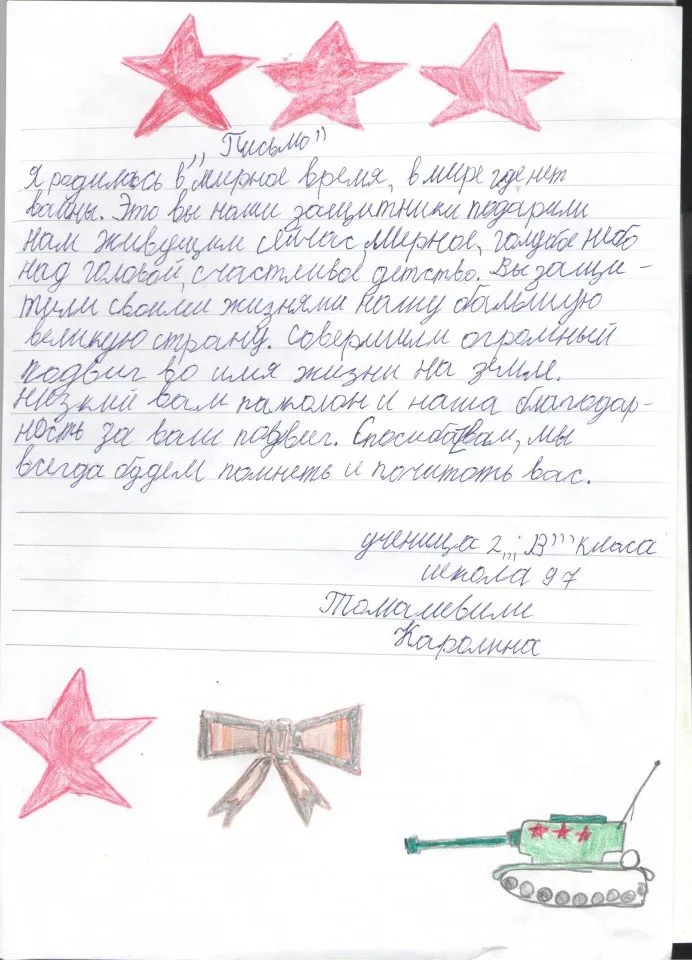 ,, Письмо"
Я родилась в мирное время, в мире где нет
вайны. Это вы наши защитники подарили
нам живущим сейчас, мирное, голубое небо
над головой, счастливое детство. Вы защи-
тили своими жизнями нашу бальшую
великую страну. Совершили огромный
подвиг во имя жизни на земле.
Низкий вам паколон и наша благодар-
ность за ваш подвиг. Спосибо вам, мы
всегда будем помнеть и почитать вас.
ученица 2 ,, В" класа
школа 97
Томашвили
Каролина